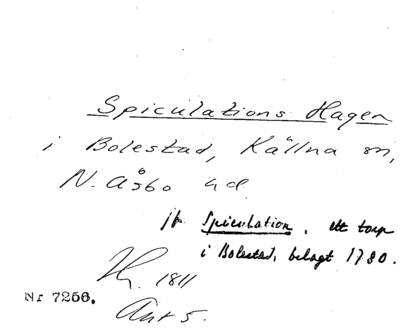 Spiculations Hagen
i Bolestad, Källna sn,
N. Åsbo hd
jfr Spiculation, ett torp
i Bolestad, belagt 1780.
1811
Nr 7256.
Akt 5.